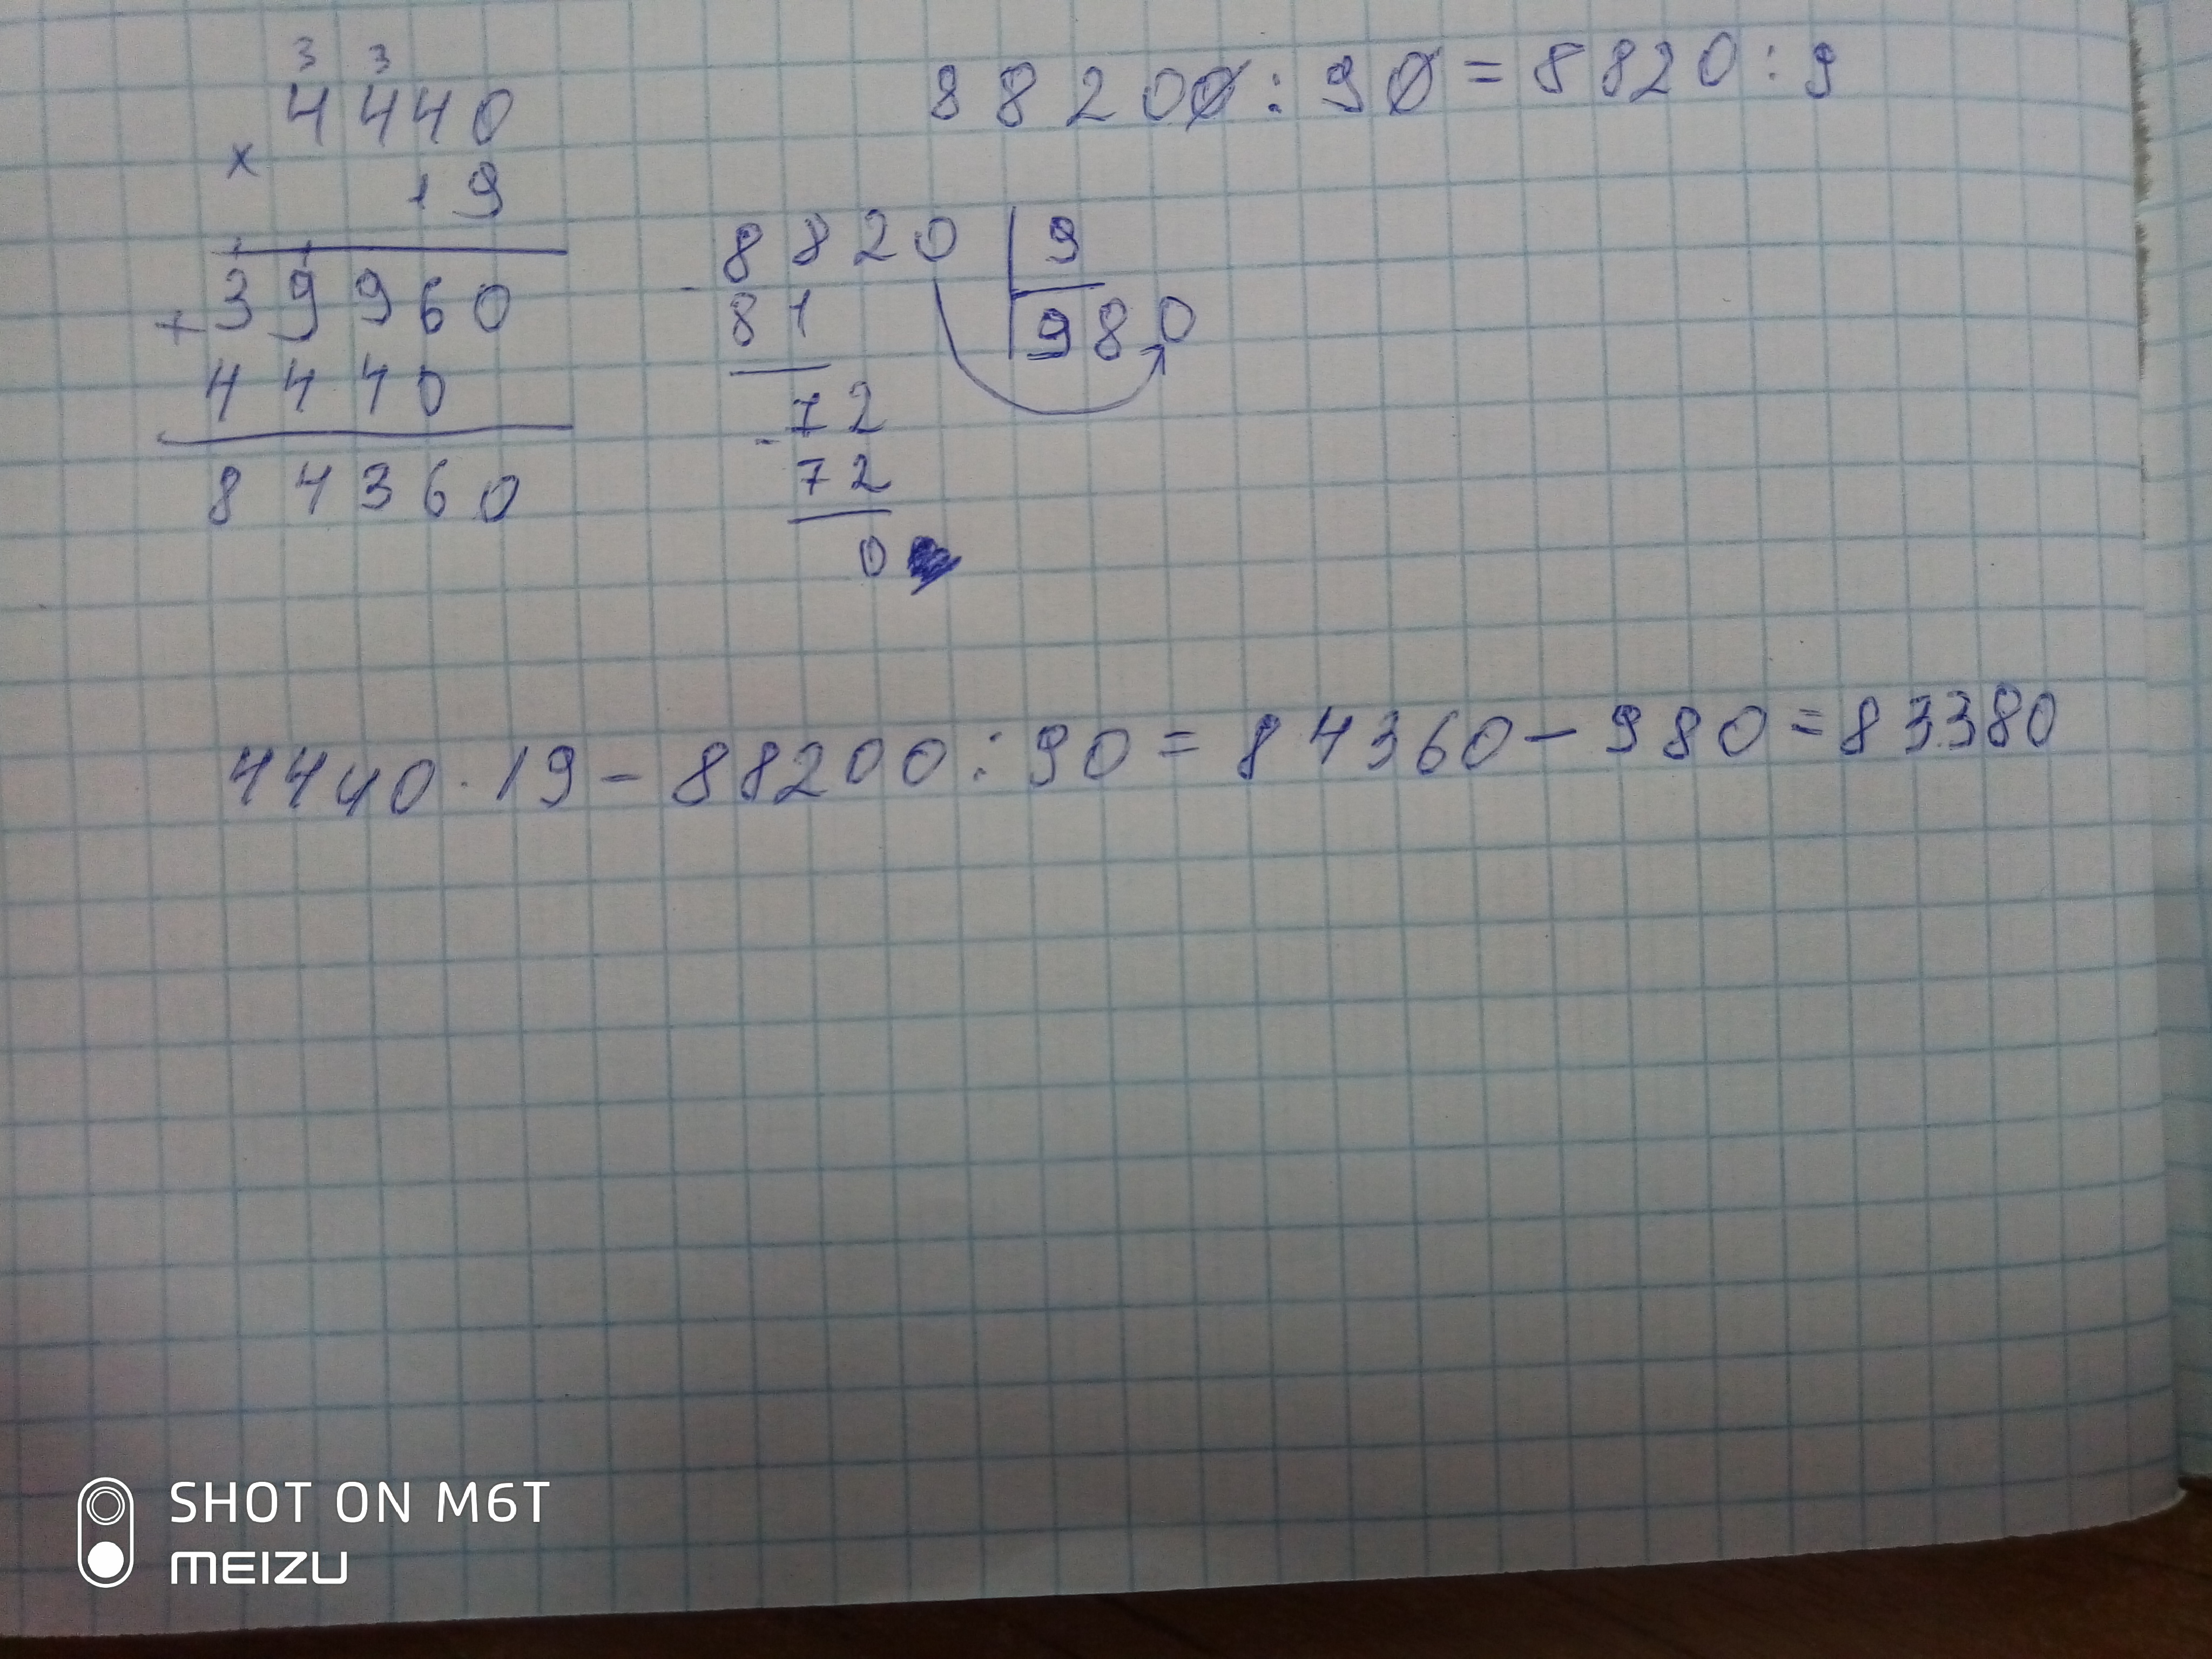 3 3
4440
× 19
39960
+ 4440
84360
88200 : 90 = 8820 : 9
- 8820 | 9
81 980
- 72
72
0
4440 · 19 - 88200 : 90 = 84360 - 980 = 83380
SHOT ON M6T
MEIZU